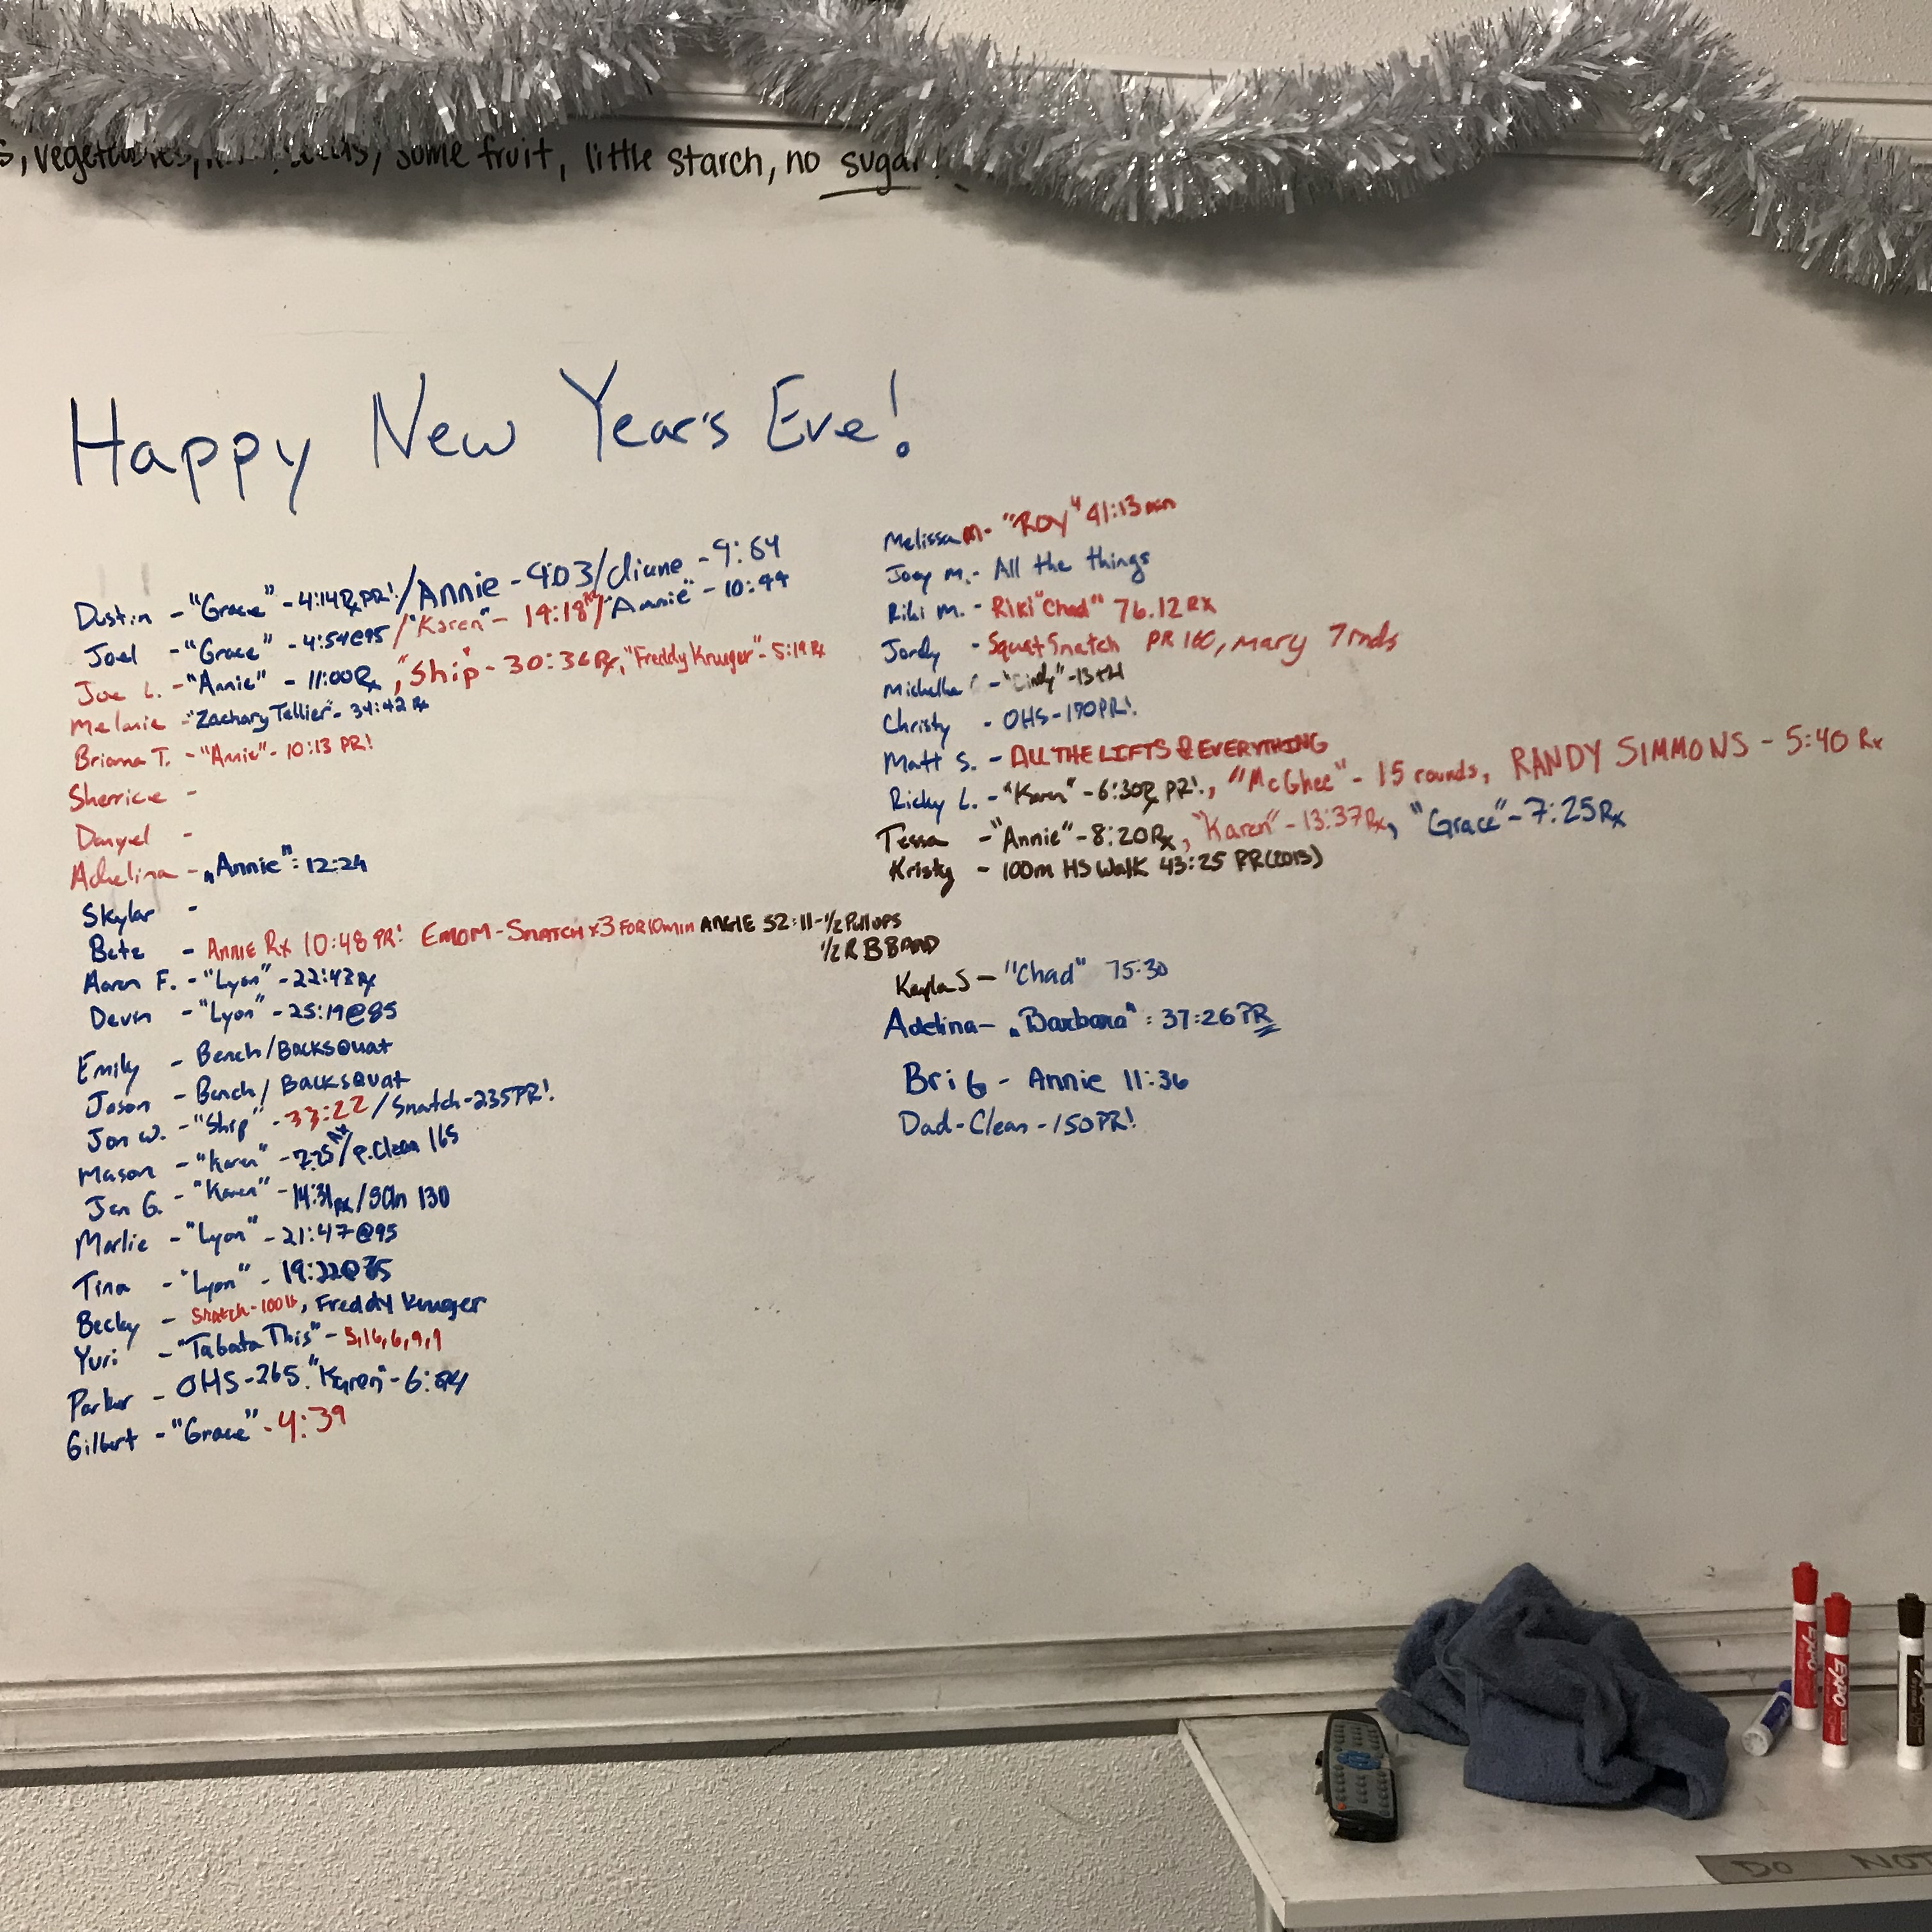 some fruit, little starch, no sugar!
Happy New Year's Eve!
Dustin - "Grace" - 4:14 Rx PR! / Annie - 9:03 / diane - 9:64
Joel - "Grace" - 4:54@95 / "Karen" - 14:18 Rx / "Annie" - 10:44
Joe L. - "Annie" - 11:00 Rx, "Ship" - 30:36 Rx, "Freddy Krueger" - 5:19 Rx
Melanie - "Zachary Tellier" - 34:42 Rx
Briana T. - "Annie" - 10:13 PR!
Sherrice -
Danyel -
Adelina - "Annie": 12:24
Skylar -
Bete - ANNIE Rx 10:48 PR! EMOM - SNATCH x3 FOR 10 min ANGIE 52:11 - 1/2 Pull ups
1/2 R B BAND
Aaron F. - "Lyon" - 22:43 Rx
Devin - "Lyon" - 25:19@85
Emily - Bench/Backsquat
Jason - Bench/Backsquat
Jon W. - "Ship" - 33:22 / Snatch - 235 PR!
Mason - "Karen" - 7:25 Rx / P.Clean 165
Jen G. - "Karen" - 14:31 Rx / SCln 130
Marlie - "Lyon" - 21:47@95
Tina - "Lyon" - 19:22@75
Becky - Snatch - 100 lb, Freddy Krueger
Yuri - "Tabata This" - 5,16,6,9,9
Parker - OHS - 265. "Karen" - 6:
Gilbert - "Grace" - 4:39
Melissa M - "ROY" 41:13 min
Joey M. - All the things
Riki M. - Riki "Chad" 76.12 RX
Jordy - Squat Snatch PR 160, Mary 7 rnds
Michelle - "Cindy" - 13+21
Christy - OHS - 170 PR!
Matt S. - ALL THE LIFTS & EVERYTHING
Ricky L. - "Karen" - 6:30 Rx PR!, "McGhee" - 15 rounds, RANDY SIMMONS - 5:40 Rx
Tessa - "Annie" - 8:20 Rx, "Karen" - 13:37 Rx, "Grace" - 7:25 Rx
Kristy - 100m HS Walk 43:25 PR (2013)
Kayla S - "Chad" 75:30
Adelina - "Barbara": 37:26 PR
Bri G - Annie 11:36
Dad - Clean - 150 PR!
EXPO
EXPO
DO NOT